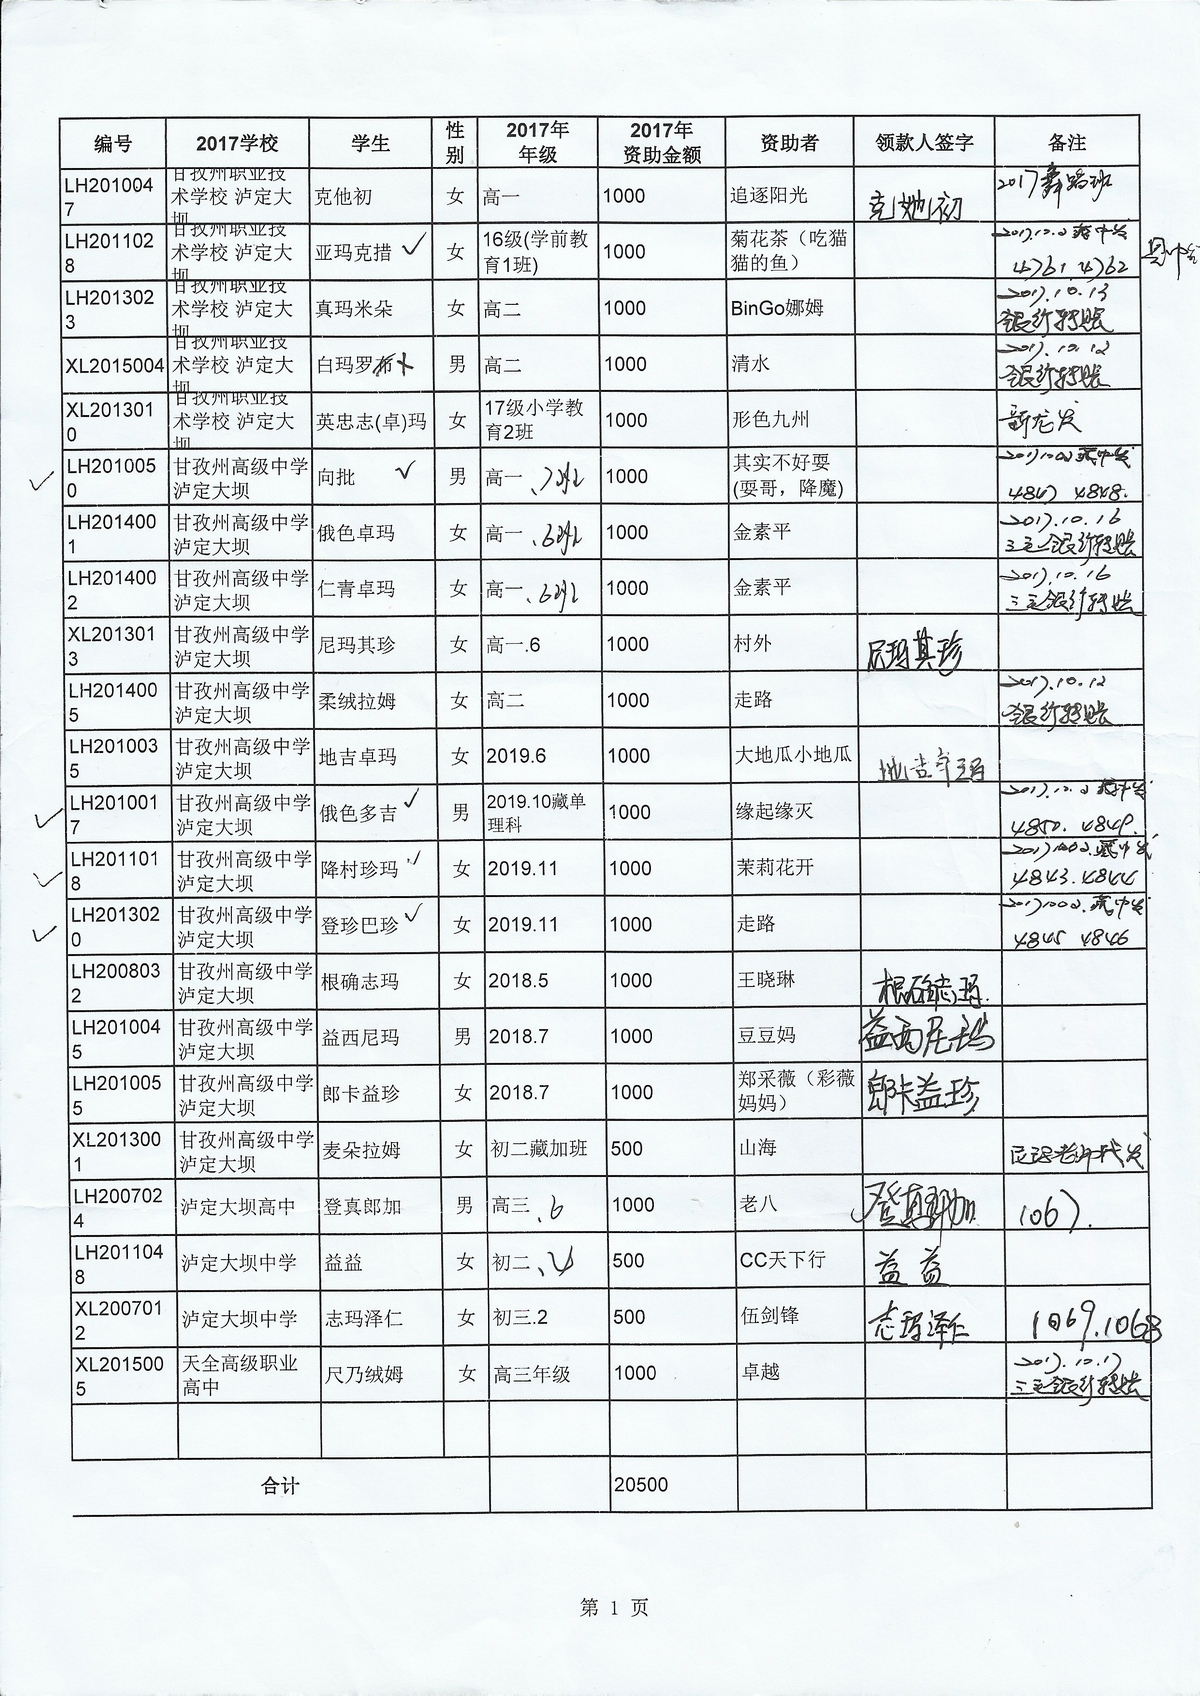 编号 2017学校 学生 性别 2017年年级 2017年资助金额 资助者 领款人签字 备注
LH2010047 甘孜州职业技术学校 泸定大坝 克他初 女 高一 1000 追逐阳光 克她初 2017舞蹈班
LH2011028 甘孜州职业技术学校 泸定大坝 亚玛克措 ✓ 女 16级(学前教育1班) 1000 菊花茶（吃猫猫的鱼） 2017.10.2 藏中发 4761 4762
LH2013023 甘孜州职业技术学校 泸定大坝 真玛米朵 女 高二 1000 BinGo娜姆 2017.10.13 银行转账
XL2015004 甘孜州职业技术学校 泸定大坝 白玛罗布 男 高二 1000 清水 2017.10.12 银行转账
XL2013010 甘孜州职业技术学校 泸定大坝 英忠志(卓)玛 女 17级小学教育2班 1000 形色九州 新龙发
✓ LH2010050 甘孜州高级中学 泸定大坝 向批 ✓ 男 高一、7班 1000 其实不好耍(耍哥，降魔) 20171002 藏中发 4847 4848.
LH2014001 甘孜州高级中学 泸定大坝 俄色卓玛 女 高一、6班 1000 金素平 2017.10.16 银行转账
LH2014002 甘孜州高级中学 泸定大坝 仁青卓玛 女 高一、6班 1000 金素平 2017.10.16 银行转账
XL2013013 甘孜州高级中学 泸定大坝 尼玛其珍 女 高一.6 1000 村外 尼玛其珍
LH2014005 甘孜州高级中学 泸定大坝 柔绒拉姆 女 高二 1000 走路 2017.10.12 银行转账
LH2010035 甘孜州高级中学 泸定大坝 地吉卓玛 女 2019.6 1000 大地瓜小地瓜 地吉卓玛
✓ LH2010017 甘孜州高级中学 泸定大坝 俄色多吉 ✓ 男 2019.10藏单理科 1000 缘起缘灭 2017.10.2 藏中发 4850. 4849.
✓ LH2011018 甘孜州高级中学 泸定大坝 降村珍玛 ✓ 女 2019.11 1000 茉莉花开 20171002.藏中发 4843.4844
✓ LH2013020 甘孜州高级中学 泸定大坝 登珍巴珍 ✓ 女 2019.11 1000 走路 20171002.藏中发 4845 4846
LH2008032 甘孜州高级中学 泸定大坝 根确志玛 女 2018.5 1000 王晓琳 根确志玛.
LH2010045 甘孜州高级中学 泸定大坝 益西尼玛 男 2018.7 1000 豆豆妈 益西尼玛
LH2010055 甘孜州高级中学 泸定大坝 郎卡益珍 女 2018.7 1000 郑采薇（彩薇妈妈） 郎卡益珍
XL2013001 甘孜州高级中学 泸定大坝 麦朵拉姆 女 初二藏加班 500 山海 老师代发
LH2007024 泸定大坝高中 登真郎加 男 高三、6 1000 老八 登真郎加 1067.
LH2011048 泸定大坝中学 益益 女 初二、 500 CC天下行 益益
XL2007012 泸定大坝中学 志玛泽仁 女 初三.2 500 伍剑锋 志玛泽仁 1069.1068
XL2015005 天全高级职业高中 尺乃绒姆 女 高三年级 1000 卓越 2017.10.17 银行转账
合计 20500
第 1 页